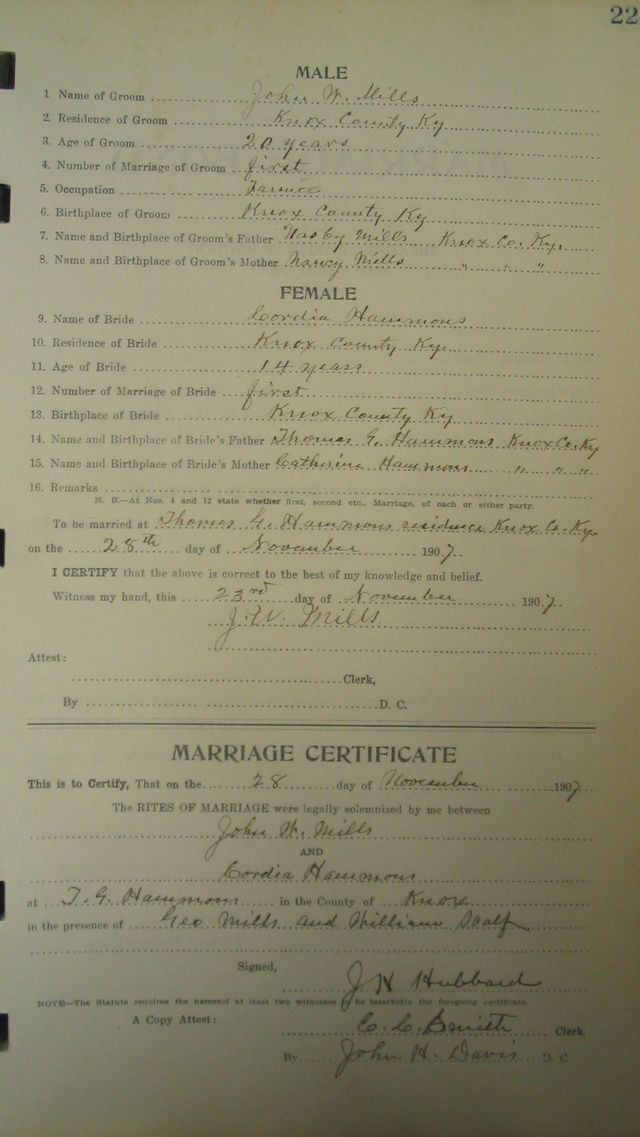 22
MALE
1. Name of Groom John W. Mills
2. Residence of Groom Knox County Ky
3. Age of Groom 20 years
4. Number of Marriage of Groom first
5. Occupation
6. Birthplace of Groom Knox County Ky
7. Name and Birthplace of Groom's Father Mills Knox Co. Ky.
8. Name and Birthplace of Groom's Mother Nancy Mills " " "
FEMALE
9. Name of Bride Cordia Hammons
10. Residence of Bride Knox County Ky.
11. Age of Bride 14 years
12. Number of Marriage of Bride first
13. Birthplace of Bride Knox County Ky
14. Name and Birthplace of Bride's Father Thomas G. Hammons Knox Co. Ky
15. Name and Birthplace of Bride's Mother Catherine Hammons " " "
16. Remarks
N. B.—At Nos. 4 and 12 state whether first, second etc., Marriage, of each or either party.
To be married at Thomas G. Hammons residence Knox Co. Ky.
on the 28th day of November 1907.
I CERTIFY that the above is correct to the best of my knowledge and belief.
Witness my hand, this 23rd day of November 1907.
J. W. Mills
Attest:
Clerk,
By D. C.
MARRIAGE CERTIFICATE
This is to Certify, That on the 28 day of November 1907.
The RITES OF MARRIAGE were legally solemnized by me between
John W. Mills
AND
Cordia Hammons
at T. G. Hammons in the County of Knox
in the presence of Geo Mills and William Scalf
Signed,
J H Hubbard
NOTE—The Statute requires the names of at least two witnesses be inserted in the foregoing certificate.
A Copy Attest: C. C. Smith Clerk.
By John H. Davis D. C